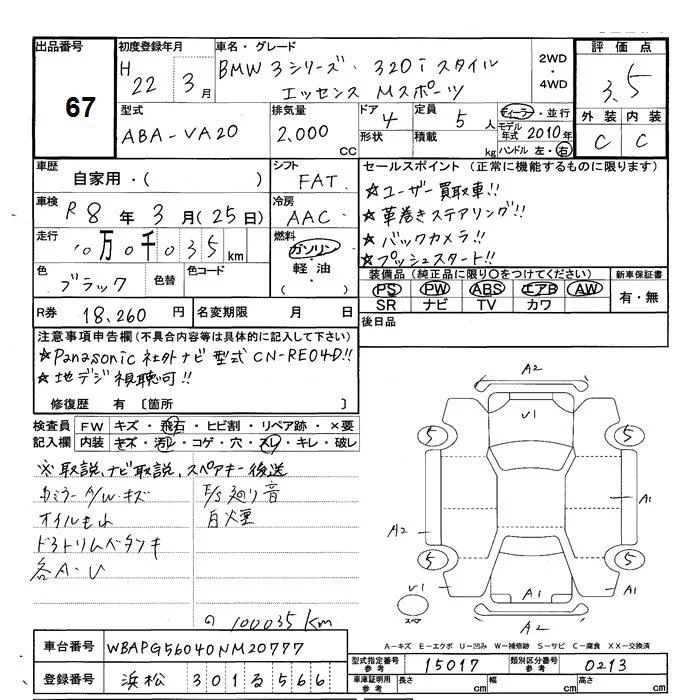 出品番号
67
初度登録年月
H 22年 3月
車名・グレード
BMW 3シリーズ・320i スタイル
エッセンス Mスポーツ
2WD
・
4WD
評価点
3.5
外装 内装
C C
型式
ABA-VA20
排気量
2,000 CC
ドア 4
形状
定員 5人
積載 kg
ディーラー・並行
モデル年式 2010年
ハンドル 左・右
車歴
自家用・( )
シフト
FAT
車検
R 8年 3月(25日)
冷房
AAC
走行
10万0千035km
燃料
ガソリン
・軽油・
( )
色
ブラック
色替
色コード
R券 18,260円
名変期限 月 日
セールスポイント(正常に機能するものに限ります)
☆ユーザー買取車!!
☆革巻きステアリング!!
☆バックカメラ!!
☆プッシュスタート!!
装備品(純正品に限り○をつけてください)
PS PW ABS エアB AW
SR ナビ TV カワ
新車保証書
有・無
後日品
注意事項申告欄(不具合内容等は具体的に記入して下さい)
☆Panasonic 社外ナビ 型式 CN-RE04D!!
☆地デジ視聴可!!
修復歴 有〔箇所 〕
検査員記入欄
FW キズ・飛石・ヒビ割・リペア跡・×要
内装 キズ・汚レ・コゲ・穴・スレ・キレ・破レ
※取説、ナビ取説、スペアキー後送
カミラー A/W・キズ
E/S廻り音
オイルもれ
白煙
ドアトリムベタツキ
各A・U
100035km
車台番号 WBAPG56040NM20777
登録番号 浜松 301る566
A2
V1
5 5
A2 A1
5 5
V1 A1
スペア
A2
A-キズ E-エクボ U-凹み W-補修跡 S-サビ C-腐食 XX-交換済
型式指定番号 参考 15017
類別区分番号 参考 0213
車庫証明用 参考 長さ cm 幅 cm 高さ cm